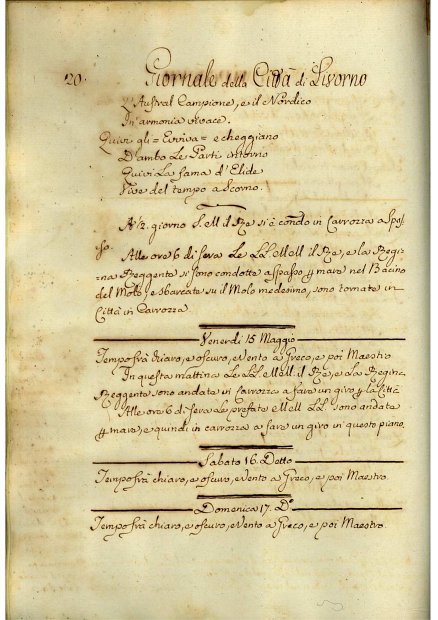 20. Giornale della Città di Livorno
L'Austral Campione, e il Nordico
In armonia vivace.
Quivi gli = Evviva = echeggiano
D'ambo Le Parti intorno
Quivi La fama d'Elide
Vive del tempo a Scorno.
A ½ giorno S. M. il Rè si è condo in Carrozza a Spas-
so.
Alle ore 6 di sera Le LL. MM. il Rè, e la Regi-
na Reggente si sono condotte a spasso p mare nel Bacino
del Molo, e sbarcate su il Molo medesimo, sono tornate in
Città in Carrozza.
Venerdì 15 Maggio
Tempo frà chiaro, e oscuro, e Vento a Greco, e poi Maestro
In questa mattina Le LL. MM. il Rè, e La Regina
Reggente sono andate in Carrozza a fare un giro p La Città
Alle ore 6 di sera Le prefate MM. LL. sono andate
p mare, e quindi in carrozza a fare un giro in questo piano.
Sabato 16. Detto
Tempo frà chiaro, e oscuro, e Vento a Greco, e poi Maestro.
Domenica 17. Dº
Tempo frà chiaro, e oscuro, e Vento a Greco, e poi Maestro.